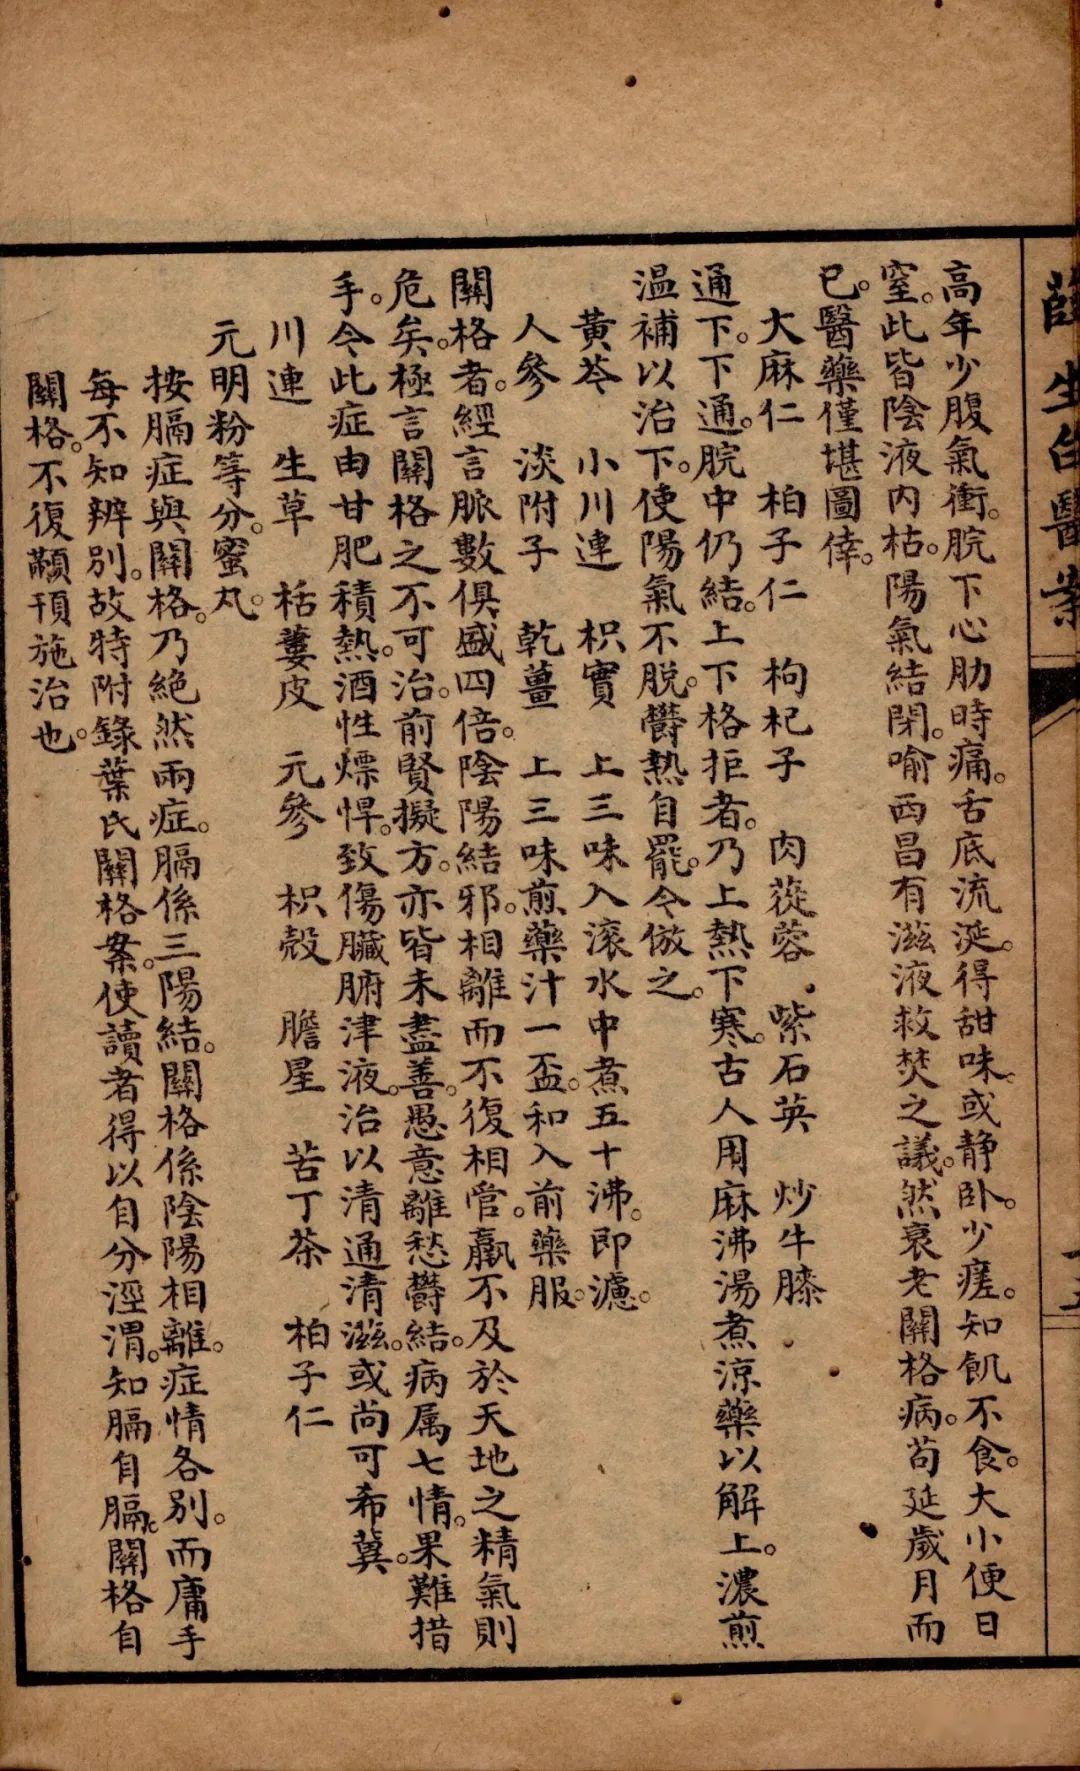 薛生白醫案
高年少腹氣衝。脘下心肋時痛。舌底流涎。得甜味。或靜卧。少瘥。知飢不食。大小便日
窒。此皆陰液內枯。陽氣結閉。喻西昌有滋液救焚之議。然衰老關格病。苟延歲月而
已。醫藥僅堪圖倖。
大麻仁　柏子仁　枸杞子　肉蓯蓉　紫石英　炒牛膝
通下。下通。脘中仍結。上下格拒者。乃上熱下寒。古人用麻沸湯煮涼藥以解上。濃煎
温補以治下。使陽氣不脫。欝熱自罷。今倣之。
黃芩　小川連　枳實　上三味入滚水中煮五十沸。即濾。
人參　淡附子　乾薑　上三味煎藥汁一盃。和入前藥服。
關格者。經言脈數俱盛四倍。陰陽結邪。相離而不復相營。羸不及於天地之精氣則
危矣。極言關格之不可治。前賢擬方。亦皆未盡善。愚意離愁欝結。病属七情。果難措
手。今此症由甘肥積熱。酒性熛悍。致傷臟腑津液。治以清通清滋。或尚可希冀。
川連　生草　栝蔞皮　元參　枳殼　膽星　苦丁茶　柏子仁
元明粉等分。蜜丸。
按膈症與關格。乃絕然兩症。膈係三陽結。關格係陰陽相離。症情各別。而庸手
每不知辨別。故特附錄葉氏關格案。使讀者得以自分涇渭。知膈自膈。關格自
關格。不復顢頇施治也。